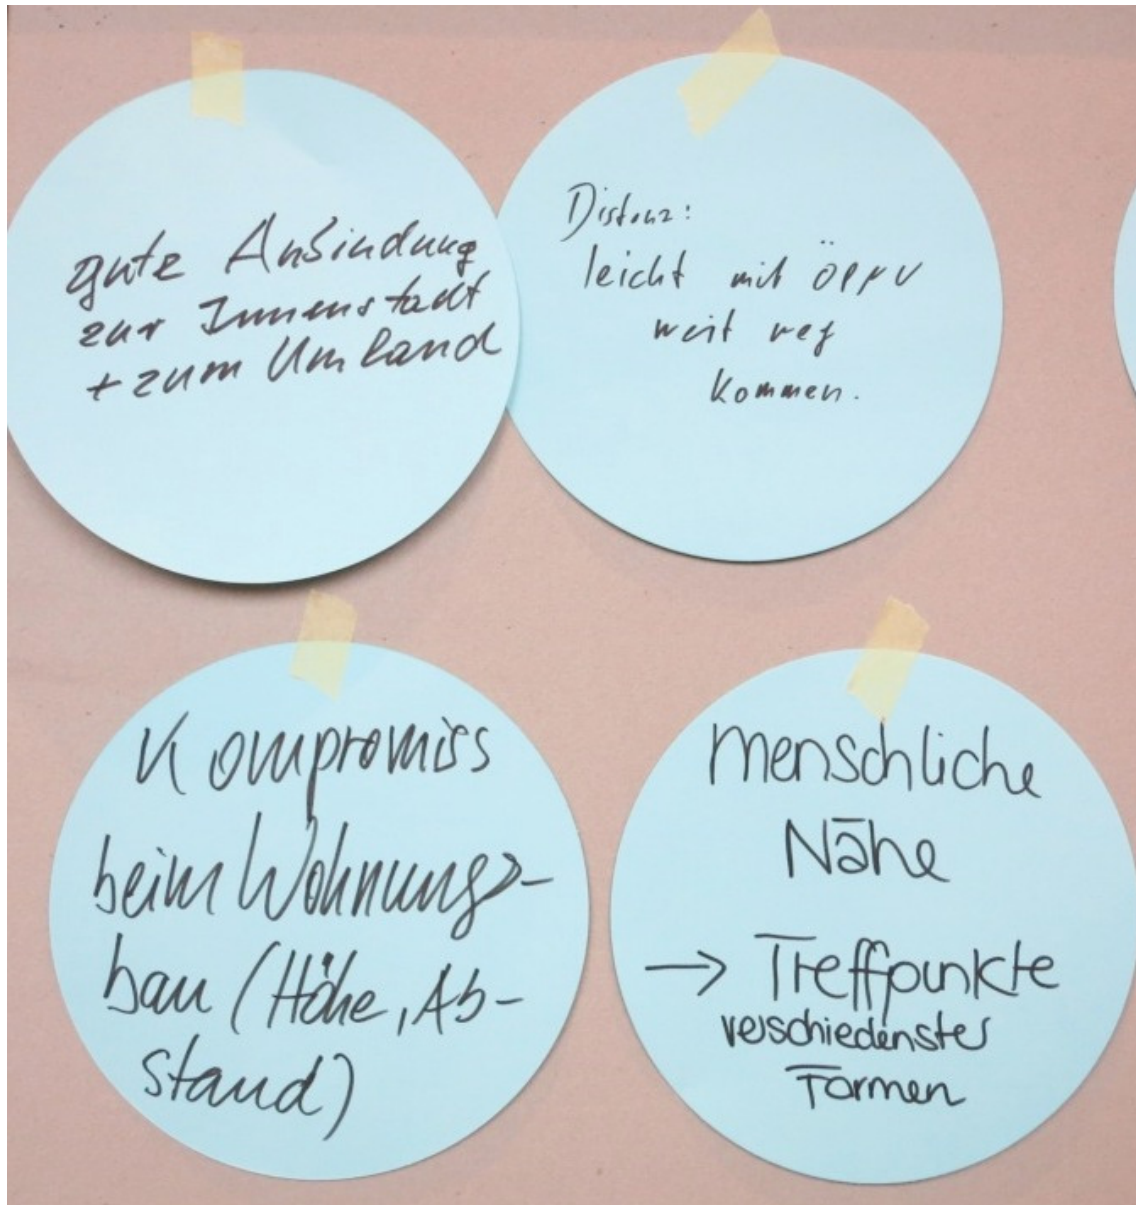 gute Anbindung
zur Innenstadt
+ zum Umland
Distanz:
leicht mit ÖPPV
weit weg
kommen.
Kompromiss
beim Wohnungs-
bau (Höhe, Ab-
stand)
menschliche
Nähe
→ Treffpunkte
verschiedenster
Formen